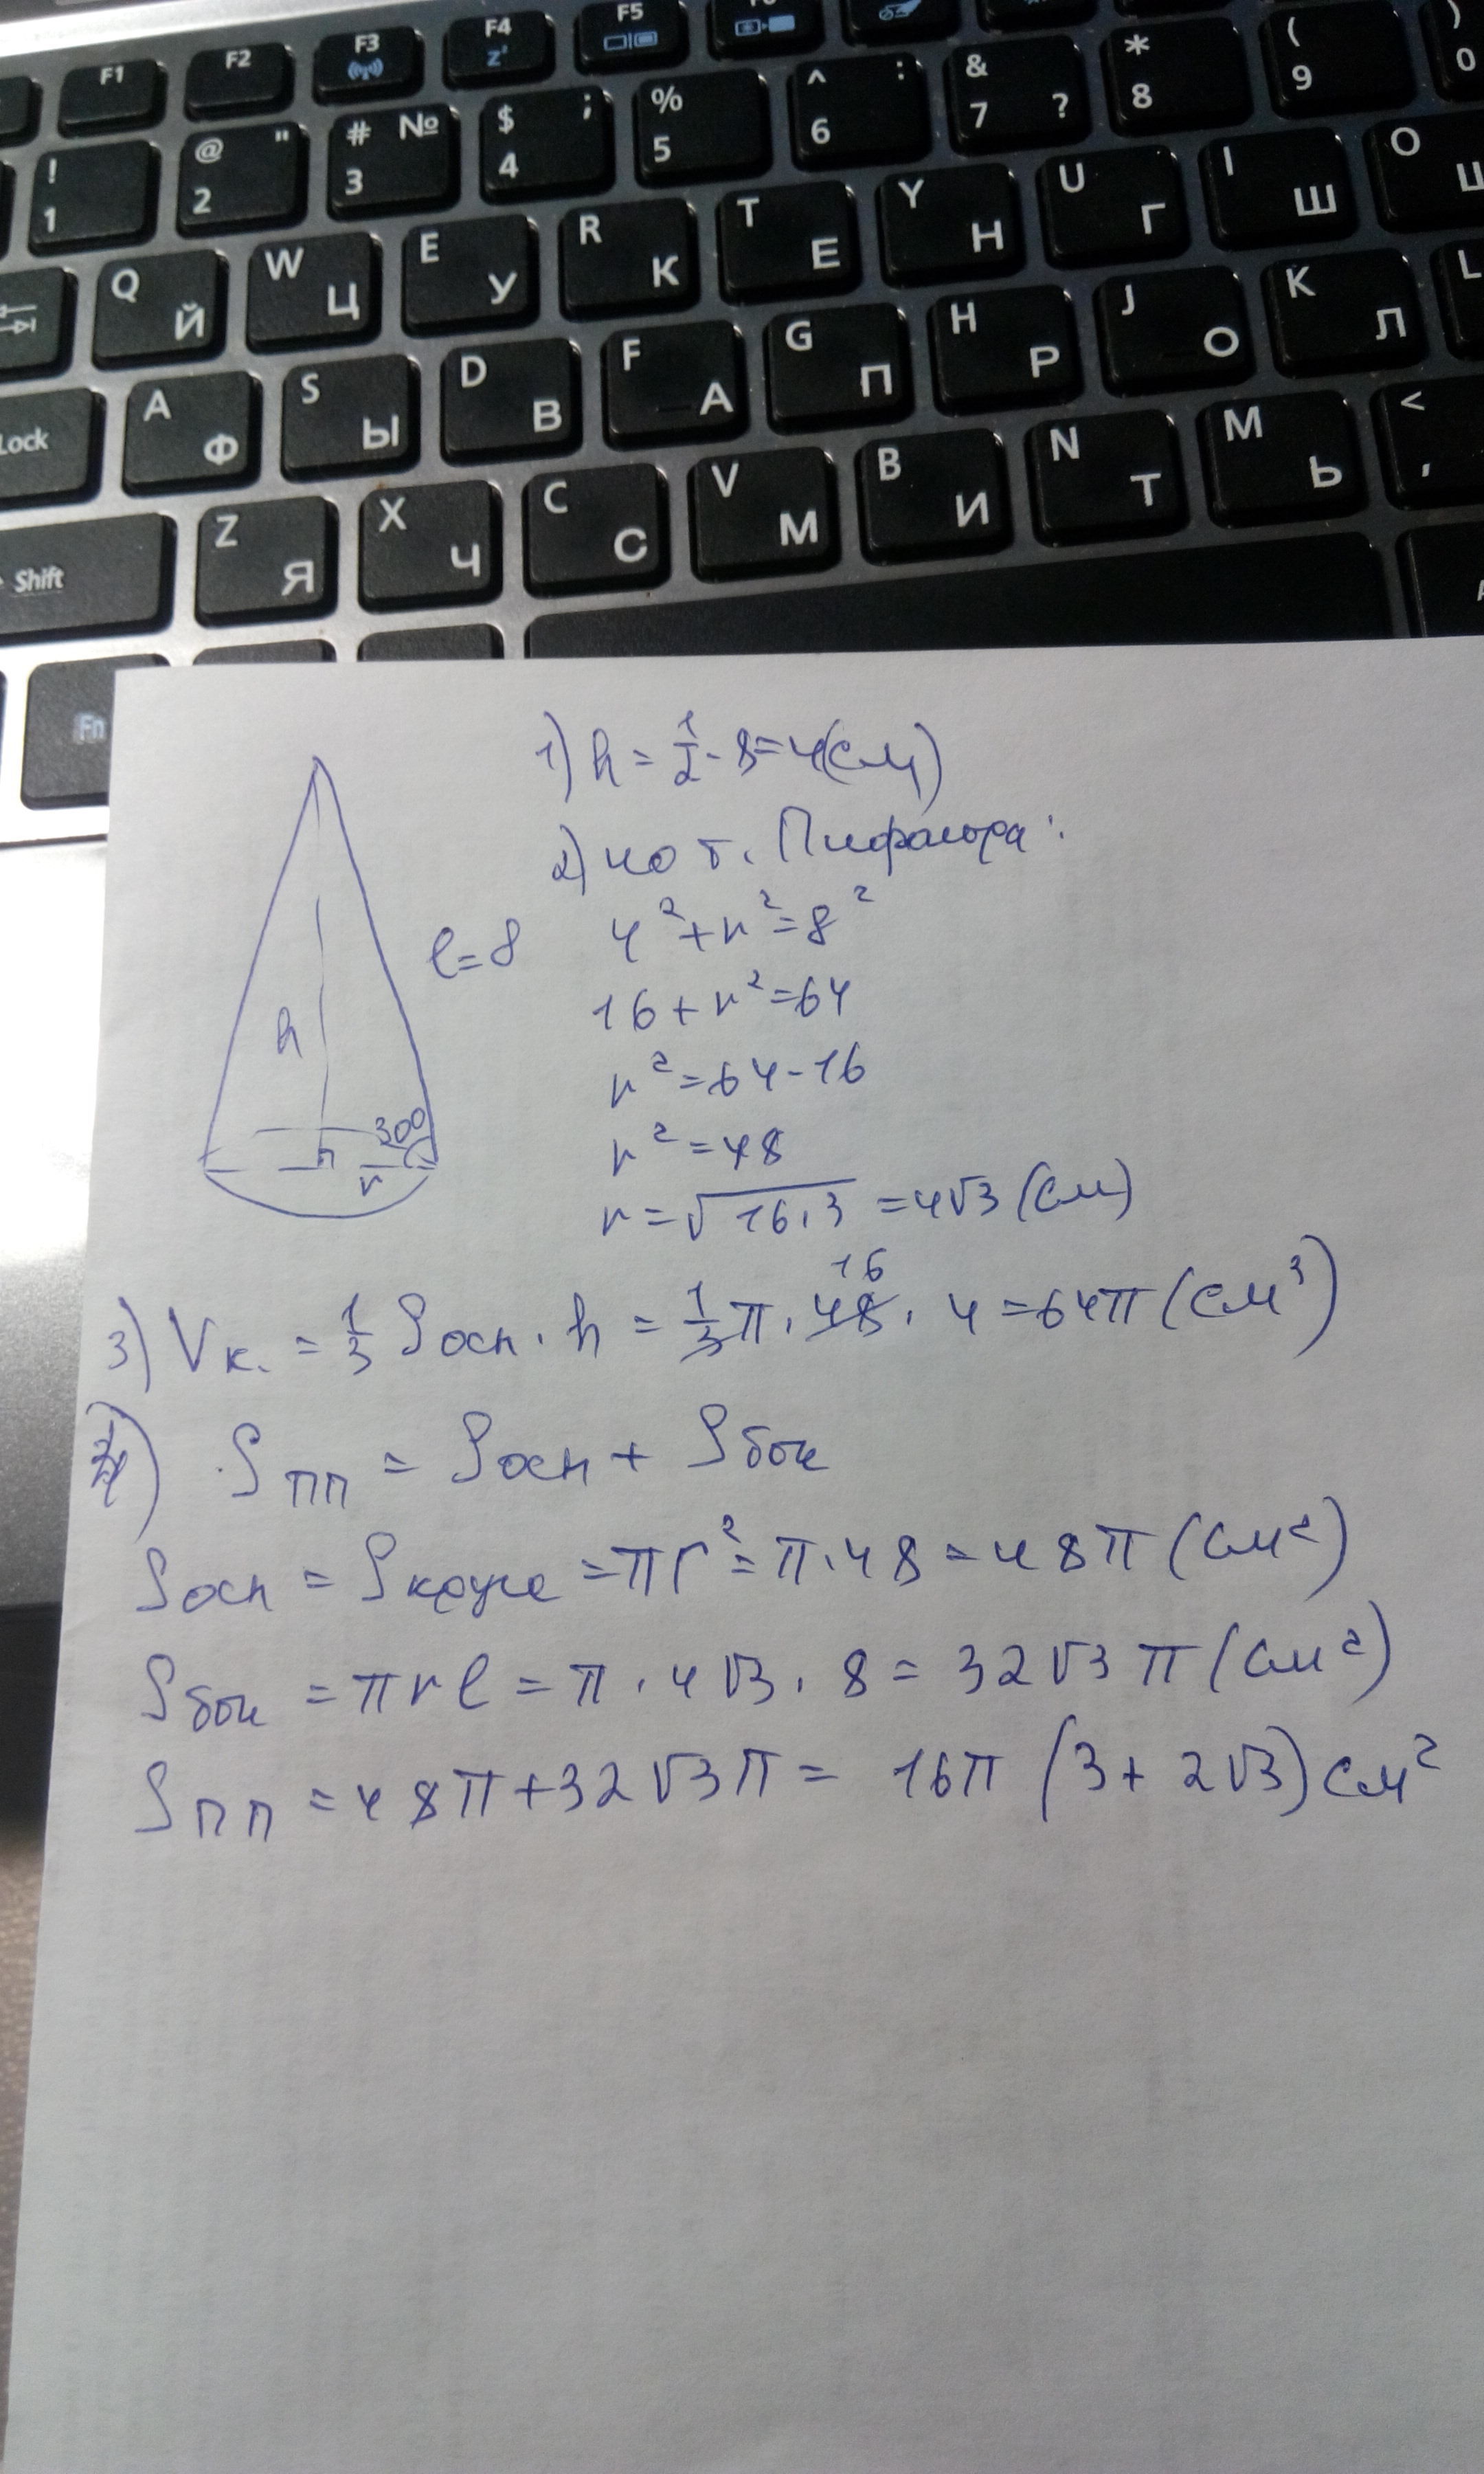 F1 F2 F3 F4 z² F5
! 1 @ " 2 # № 3 $ ; 4 % 5 ^ : 6 & 7 ? * 8 ( 9 ) 0
Q Й W Ц E У R К T Е Y Н U Г I Ш O Щ
Lock A Ф S Ы D В F А G П H Р J О K Л L
Shift Z Я X Ч C С V М B И N Т M Ь < ,
Fn
1) h = 1/2 · 8 = 4 (см)
2) по т. Пифагора:
4² + r² = 8²
l = 8
16 + r² = 64
h
r² = 64 - 16
30°
r² = 48
r
r = √16·3 = 4√3 (см)
3) Vк. = 1/3 Sосн · h = 1/3 π · 48 · 4 = 64π (см³)
16
4) Sпп = Sосн + Sбок
Sосн = Sкруга = πr² = π · 48 = 48π (см²)
Sбок = πrl = π · 4√3 · 8 = 32√3 π (см²)
Sпп = 48π + 32√3π = 16π (3 + 2√3) см²